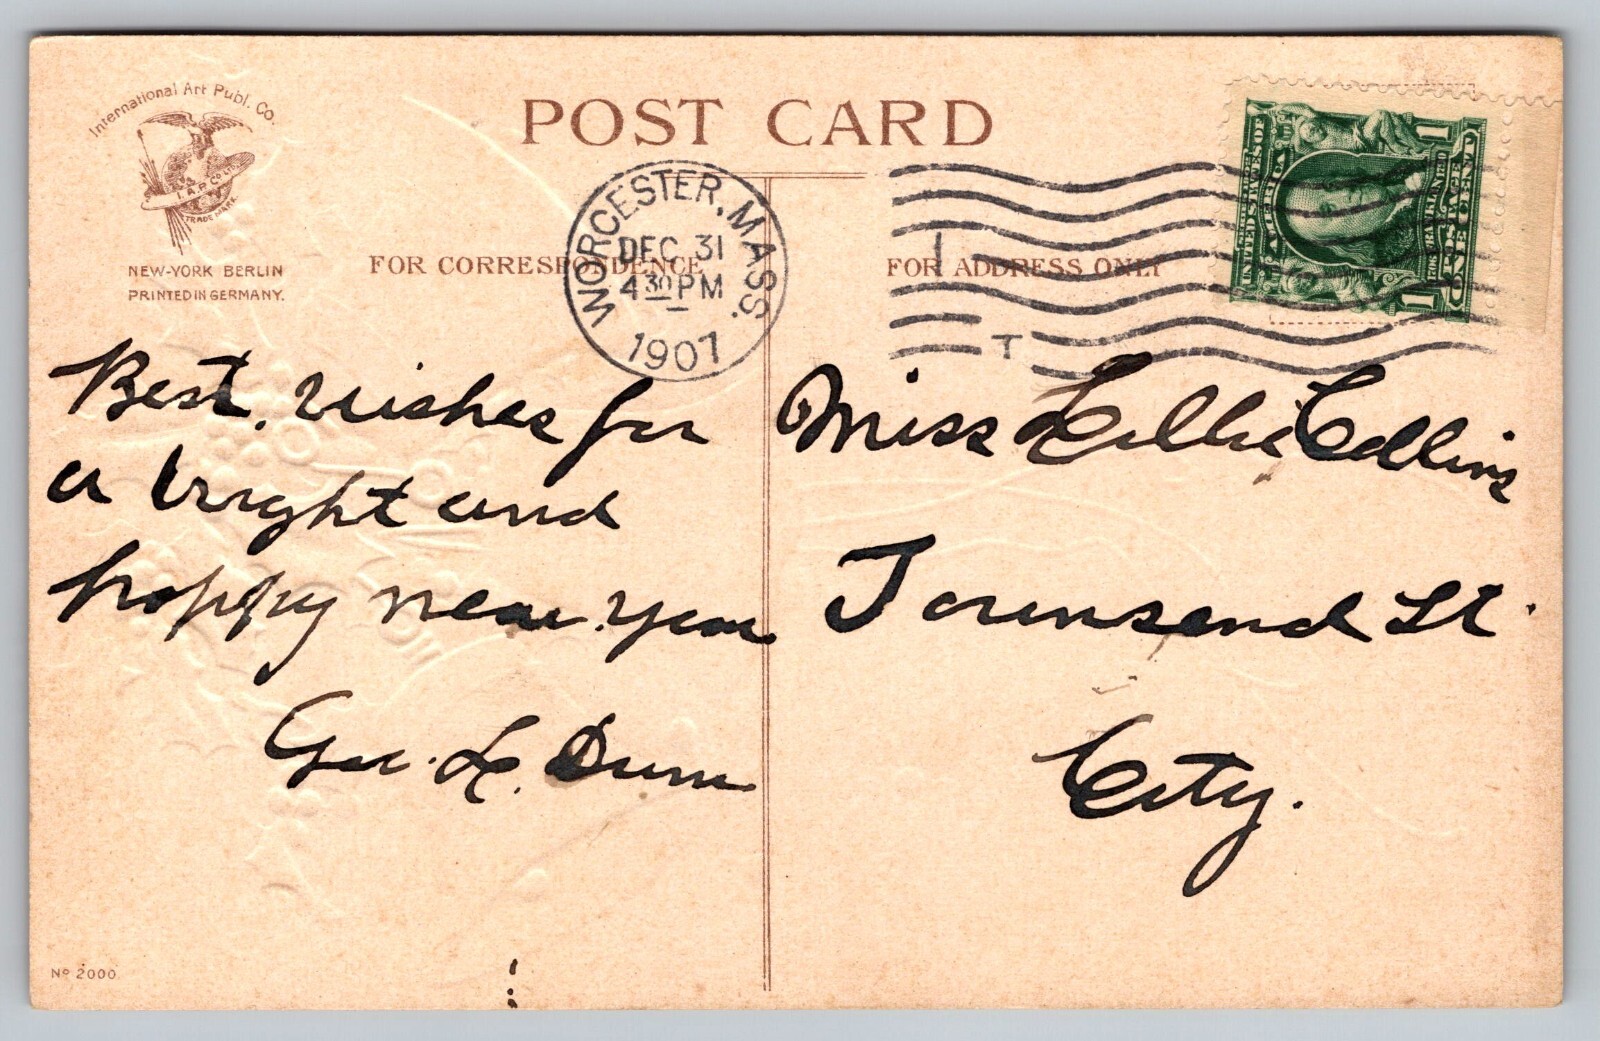 International Art Publ. Co.
I.A.P. CO. LTD.
TRADE MARK
NEW-YORK BERLIN
PRINTED IN GERMANY.
POST CARD
FOR CORRESPONDENCE
FOR ADDRESS ONLY
WORCESTER, MASS.
DEC 31
4 30 PM
1907
1
T
UNITED STATES OF
AMERICA
1 1
POSTAGE
ONE CENT
Best wishes for
a bright and
happy new year
Geo. L. Dunn
Miss Lillie Collins
Townsend St.
City.
No 2000